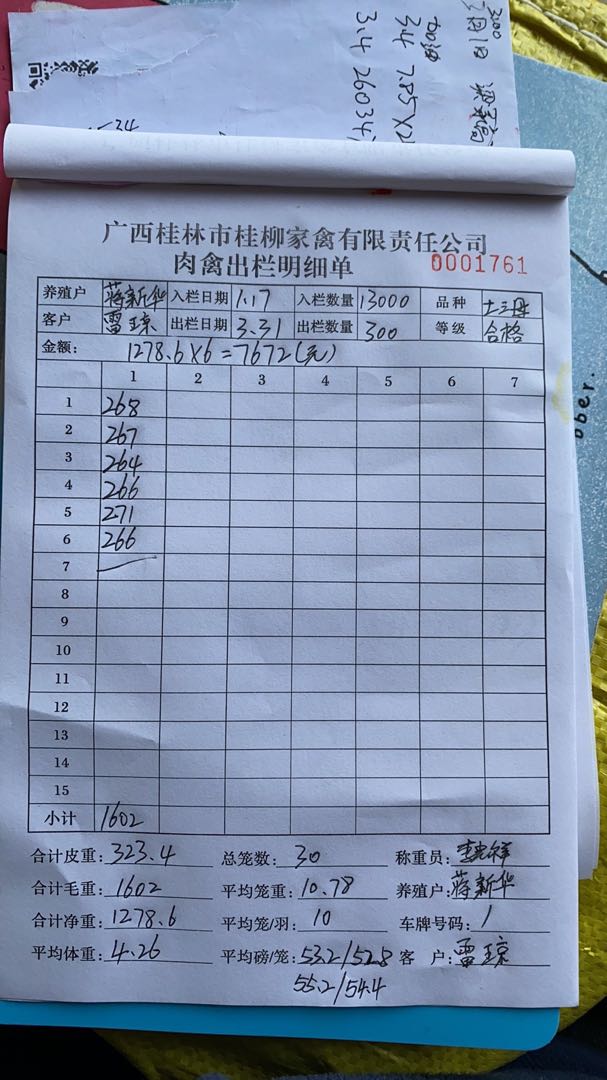 3.00
3月1日
34 7.85X
3.4 26034
34
广西桂林市桂柳家禽有限责任公司
肉禽出栏明细单 0001761
养殖户 蒋新华 入栏日期 1.17 入栏数量 13000 品种 土三母
客户 雷琼 出栏日期 3.31 出栏数量 300 等级 合格
金额: 1278.6×6=7672(元)
1 2 3 4 5 6 7
1 268
2 267
3 264
4 266
5 271
6 266
7
8
9
10
11
12
13
14
15
小计 1602
合计皮重: 323.4 总笼数: 30 称重员:
合计毛重: 1602 平均笼重: 10.78 养殖户: 蒋新华
合计净重: 1278.6 平均笼/羽: 10 车牌号码: /
平均体重: 4.26 平均磅/笼: 53.2/52.8 客 户: 雷琼
55.2/54.4
ober.